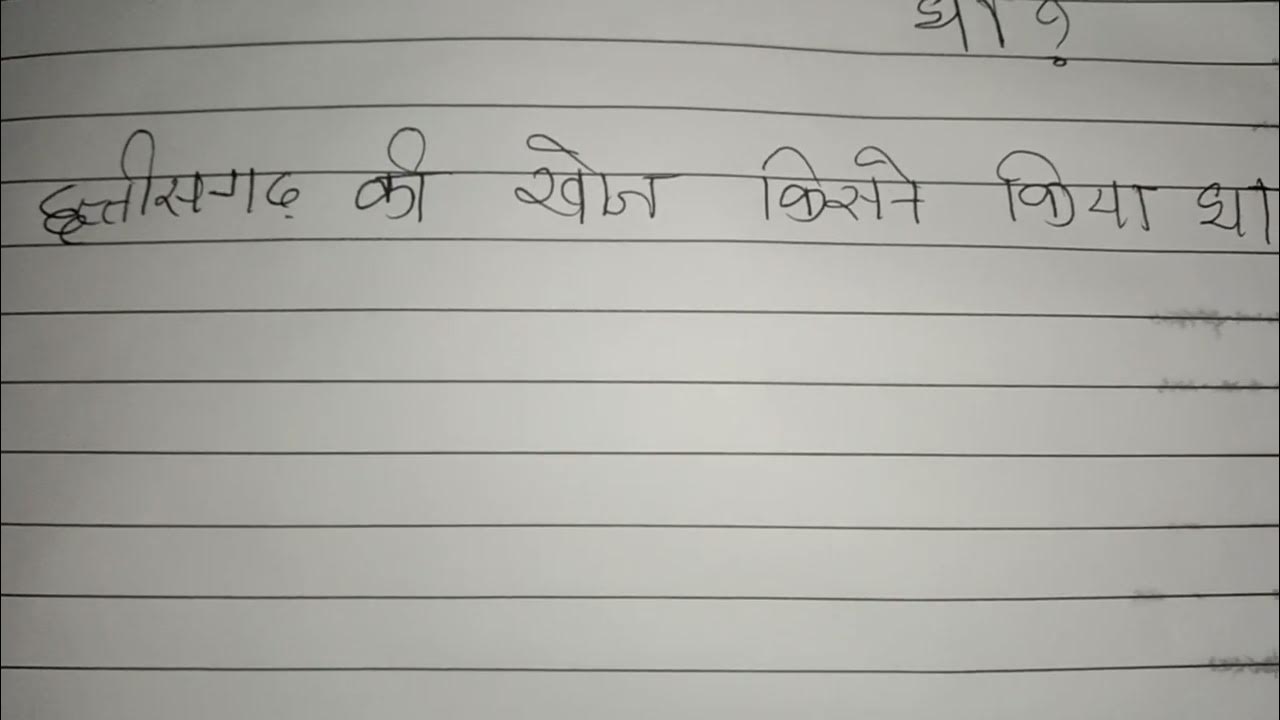 था?
छत्तीसगढ़ की खोज किसने किया था